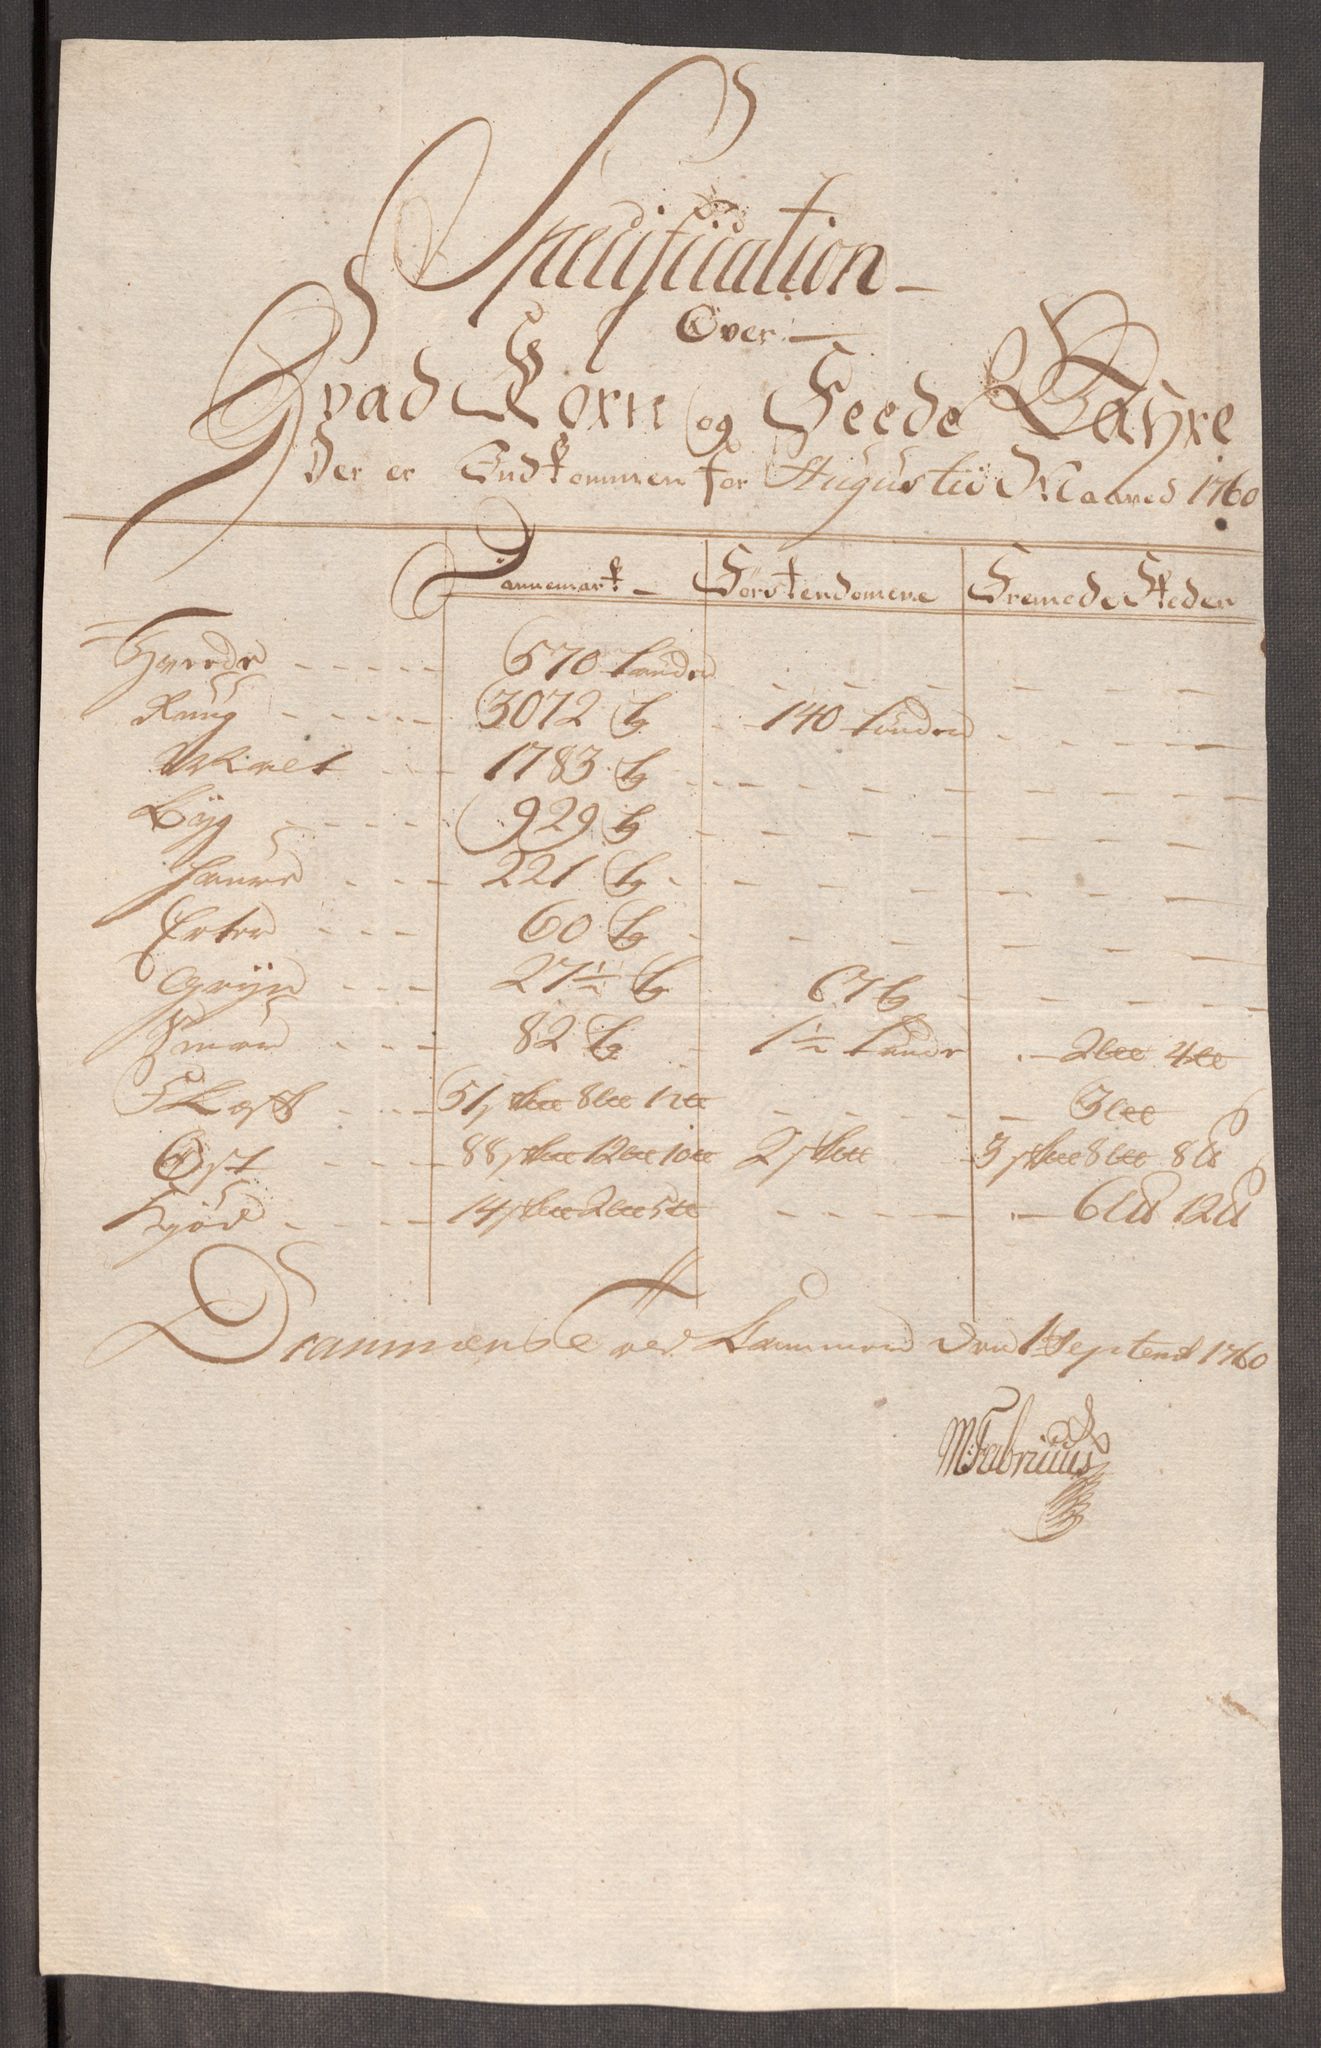 Specification
Over
Hvad Korn og Feede Vahre
Der er Indkommen for Augusti Maaned 1760
Dannemark Förstendomene Fremede Steder
Hvede 570 tünder
Rüug 3072 tr 140 tünder
Malt 1783 tr
Byg 929 tr
Haure 221 tr
Erter 60 tr
Gryn 27½ tr 67 tr
Smör 82 tr 1½ tünde 2 L℔ 4 ℔
Flesk 51 sk℔ 8 L℔ 12 ℔ 3 L℔
Ost 88 sk℔ 12 L℔ 10 ℔ 2 sk℔ 3 sk℔ 8 L℔ 8 ℔
Kjöd 14 sk℔ 2 L℔ 5 ℔ 6 L℔ 12 ℔
Drammens Told Kammer den 1 Septembr 1760
M: Fabricius